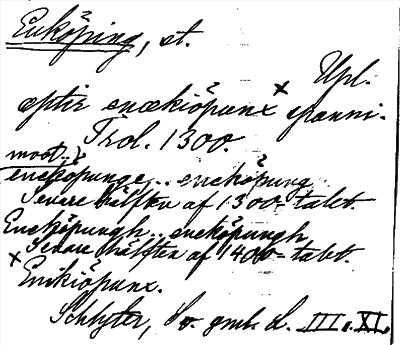 Enköping, st.
Upl.
eptir enækiöpunx x spanni.
Trol. 1300.
moot..
encköpunge.. encköpung
Senare hälften af 1300-talet.
Encköpungh.. eneköpungh
Senare hälften af 1400-talet.
x Enikiöpunx.
Schlyter, Sv. gml. L. III. XI.